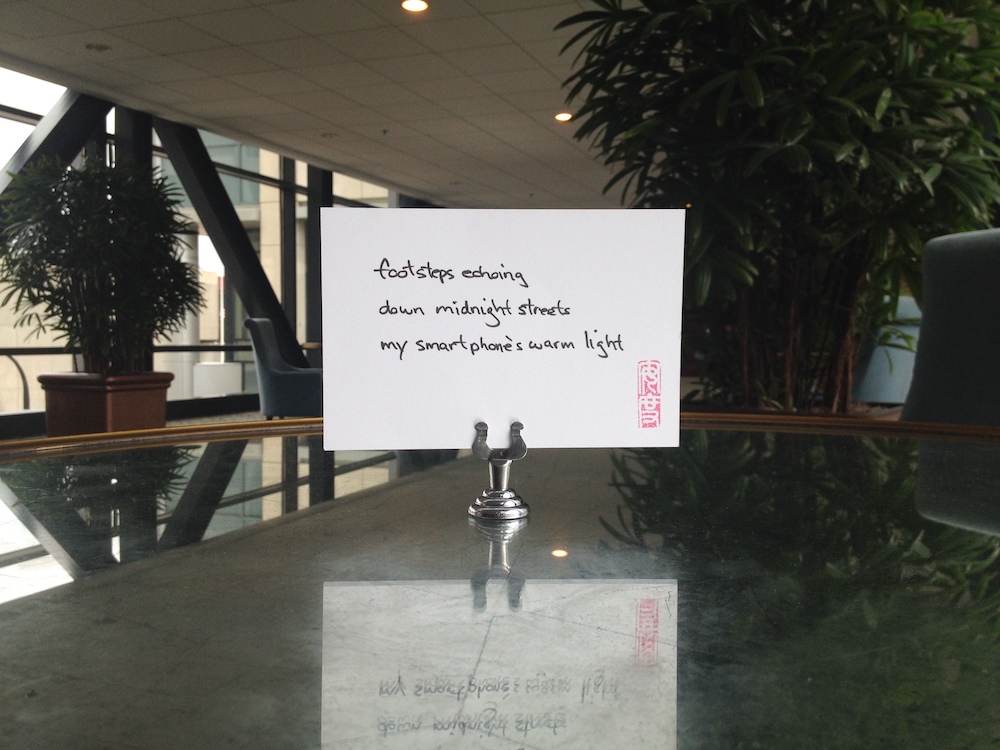 footsteps echoing
down midnight streets
my smartphone's warm light